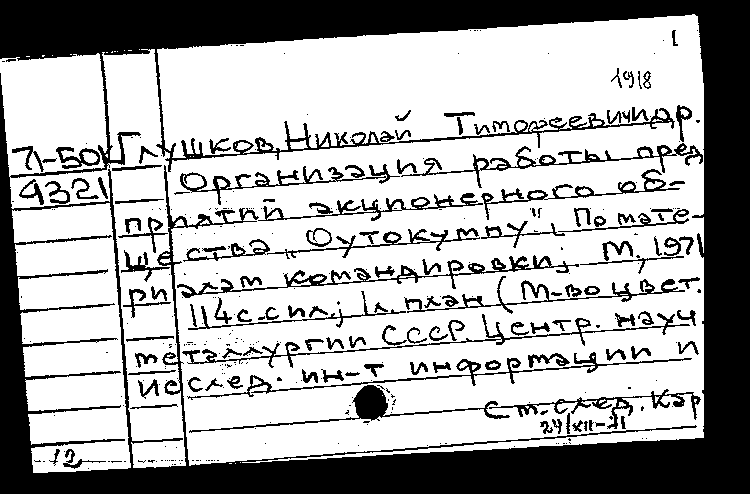 1
1918
71-50 Глушков, Николай Тимофеевич и др.
4321 Организация работы пред
приятий акционерного об-
щества „Оутокумпу". По мате-
риалам командировки. М, 1971
114с. с ил.; 1л. план (М-во цвет.
металлургии СССР. Центр. науч.
исслед. ин-т информации и
См. след. кар
24/XII-71
12